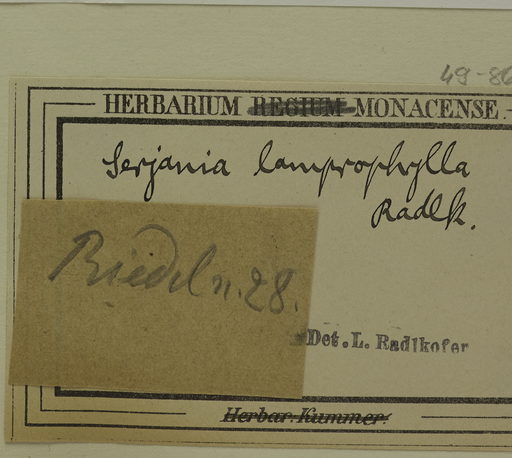 49-86
HERBARIUM REGIUM MONACENSE.
Serjania lamprophylla
Radlk.
Riedel n. 28.
Det. L. Radlkofer
Herbar. Kummer.